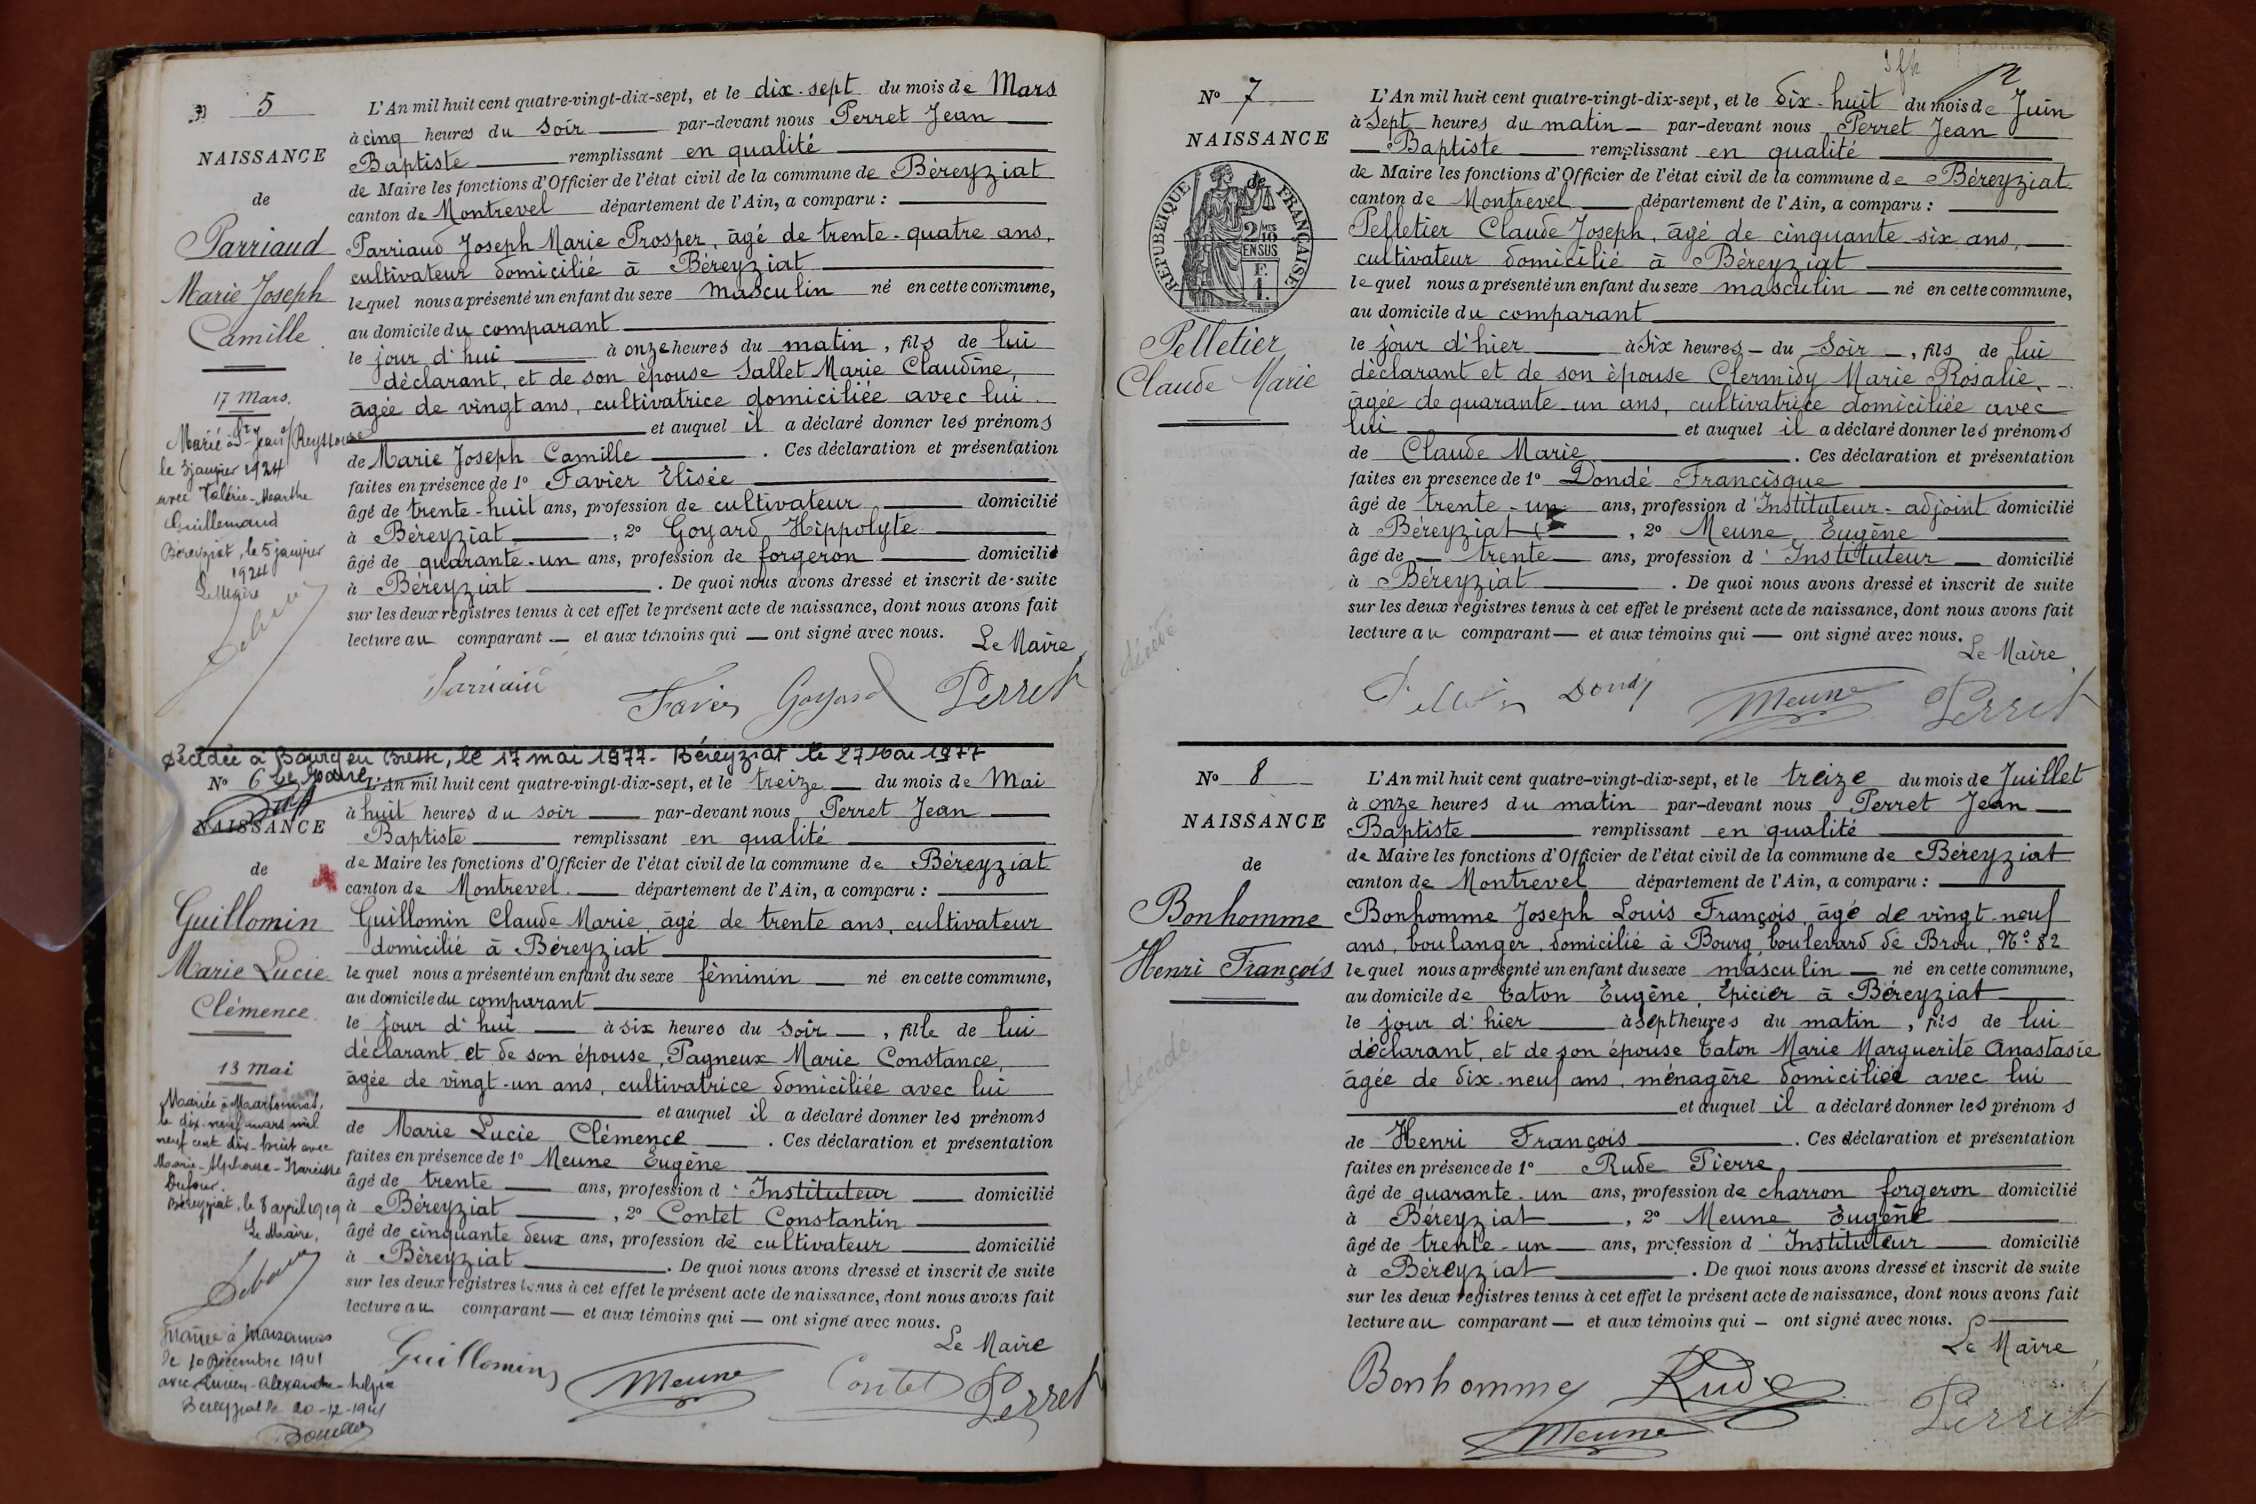 N° 5
NAISSANCE
de
Parriaud
Marie Joseph
Camille
17 Mars.
Marié à St Jean s/ Reyssouze
le 3 janvier 1924
avec Valérie-Marthe
Guillemaud
Béreyziat, le 5 janvier
1924
Le Maire
L'An mil huit cent quatre-vingt-dix-sept, et le dix-sept du mois de Mars
à cinq heures du soir par-devant nous Perret Jean
Baptiste remplissant en qualité
de Maire les fonctions d'Officier de l'état civil de la commune de Béreyziat
canton de Montrevel département de l'Ain, a comparu :
Parriaud Joseph Marie Prosper, âgé de trente-quatre ans,
cultivateur domicilié à Béreyziat
lequel nous a présenté un enfant du sexe masculin né en cette commune,
au domicile du comparant
le jour d'hui à onze heures du matin, fils de lui
déclarant, et de son épouse Sallet Marie Claudine,
âgée de vingt ans, cultivatrice domiciliée avec lui.
et auquel il a déclaré donner les prénoms
de Marie Joseph Camille . Ces déclaration et présentation
faites en présence de 1° Favier Elisée
âgé de trente-huit ans, profession de cultivateur domicilié
à Béreyziat , 2° Goyard Hippolyte
âgé de quarante-un ans, profession de forgeron domicilié
à Béreyziat . De quoi nous avons dressé et inscrit de suite
sur les deux registres tenus à cet effet le présent acte de naissance, dont nous avons fait
lecture au comparant — et aux témoins qui — ont signé avec nous.
Le Maire
Parriaud Favier Goyard Perret
Décédée à Bourg en Bresse, le 17 mai 1977 - Béreyziat le 27 Mai 1977
N° 6 Le Maire
NAISSANCE
de
Guillomin
Marie Lucie
Clémence
13 Mai
Mariée à Marsonnas,
le dix-neuf mars mil
neuf cent dix-huit avec
Marie-Alphonse-Narcisse
Dufour.
Béreyziat, le 8 avril 1919
Le Maire,
Mariée à Marsonnas
le 10 Décembre 1941
avec Lucien-Alexandre
Béreyziat le 20-12-1941
L'An mil huit cent quatre-vingt-dix-sept, et le treize du mois de Mai
à huit heures du soir par-devant nous Perret Jean
Baptiste remplissant en qualité
de Maire les fonctions d'Officier de l'état civil de la commune de Béreyziat
canton de Montrevel. département de l'Ain, a comparu :
Guillomin Claude Marie, âgé de trente ans, cultivateur
domicilié à Béreyziat
lequel nous a présenté un enfant du sexe féminin — né en cette commune,
au domicile du comparant
le jour d'hui à six heures du soir —, fille de lui
déclarant et de son épouse, Pagneux Marie Constance,
âgée de vingt-un ans, cultivatrice domiciliée avec lui
et auquel il a déclaré donner les prénoms
de Marie Lucie Clémence . Ces déclaration et présentation
faites en présence de 1° Meune Eugène
âgé de trente ans, profession d'Instituteur domicilié
à Béreyziat , 2° Contet Constantin
âgé de cinquante deux ans, profession de cultivateur domicilié
à Béreyziat . De quoi nous avons dressé et inscrit de suite
sur les deux registres tenus à cet effet le présent acte de naissance, dont nous avons fait
lecture au comparant — et aux témoins qui — ont signé avec nous.
Le Maire
Guillomin Meune Contet Perret
N° 7
NAISSANCE
de
REPUBLIQUE FRANÇAISE
2/10 MES
EN SUS
F.
1.
Pelletier
Claude Marie
décédé
L'An mil huit cent quatre-vingt-dix-sept, et le dix-huit du mois de Juin
à sept heures du matin — par-devant nous Perret Jean
Baptiste remplissant en qualité
de Maire les fonctions d'Officier de l'état civil de la commune de Béreyziat
canton de Montrevel département de l'Ain, a comparu :
Pelletier Claude Joseph, âgé de cinquante six ans,
cultivateur domicilié à Béreyziat
lequel nous a présenté un enfant du sexe masculin — né en cette commune,
au domicile du comparant
le jour d'hier à six heures — du soir —, fils de lui
déclarant et de son épouse Clermidy Marie Rosalie,
âgée de quarante-un ans, cultivatrice domiciliée avec
lui et auquel il a déclaré donner les prénoms
de Claude Marie . Ces déclaration et présentation
faites en présence de 1° Dondé Francisque
âgé de trente-un ans, profession d'Instituteur-adjoint domicilié
à Béreyziat , 2° Meune Eugène
âgé de — trente — ans, profession d'Instituteur — domicilié
à Béreyziat . De quoi nous avons dressé et inscrit de suite
sur les deux registres tenus à cet effet le présent acte de naissance, dont nous avons fait
lecture au comparant — et aux témoins qui — ont signé avec nous.
Le Maire
Pelletier Dondé Meune Perret
N° 8
NAISSANCE
de
Bonhomme
Henri François
décédé
L'An mil huit cent quatre-vingt-dix-sept, et le treize du mois de Juillet
à onze heures du matin par-devant nous Perret Jean
Baptiste remplissant en qualité
de Maire les fonctions d'Officier de l'état civil de la commune de Béreyziat
canton de Montrevel département de l'Ain, a comparu :
Bonhomme Joseph Louis François, âgé de vingt-neuf
ans, boulanger, domicilié à Bourg, boulevard de Brou, N° 82
lequel nous a présenté un enfant du sexe masculin — né en cette commune,
au domicile de Caton Eugène, Epicier à Béreyziat
le jour d'hier à sept heures du matin, fils de lui
déclarant, et de son épouse Caton Marie Marguerite Anastasie
âgée de dix-neuf ans, ménagère domiciliée avec lui
et auquel il a déclaré donner les prénoms
de Henri François . Ces déclaration et présentation
faites en présence de 1° Rude Pierre
âgé de quarante-un ans, profession de charron forgeron domicilié
à Béreyziat , 2° Meune Eugène
âgé de trente-un ans, profession d'Instituteur domicilié
à Béreyziat . De quoi nous avons dressé et inscrit de suite
sur les deux registres tenus à cet effet le présent acte de naissance, dont nous avons fait
lecture au comparant — et aux témoins qui — ont signé avec nous.
Le Maire
Bonhomme Rude Perret
Meune